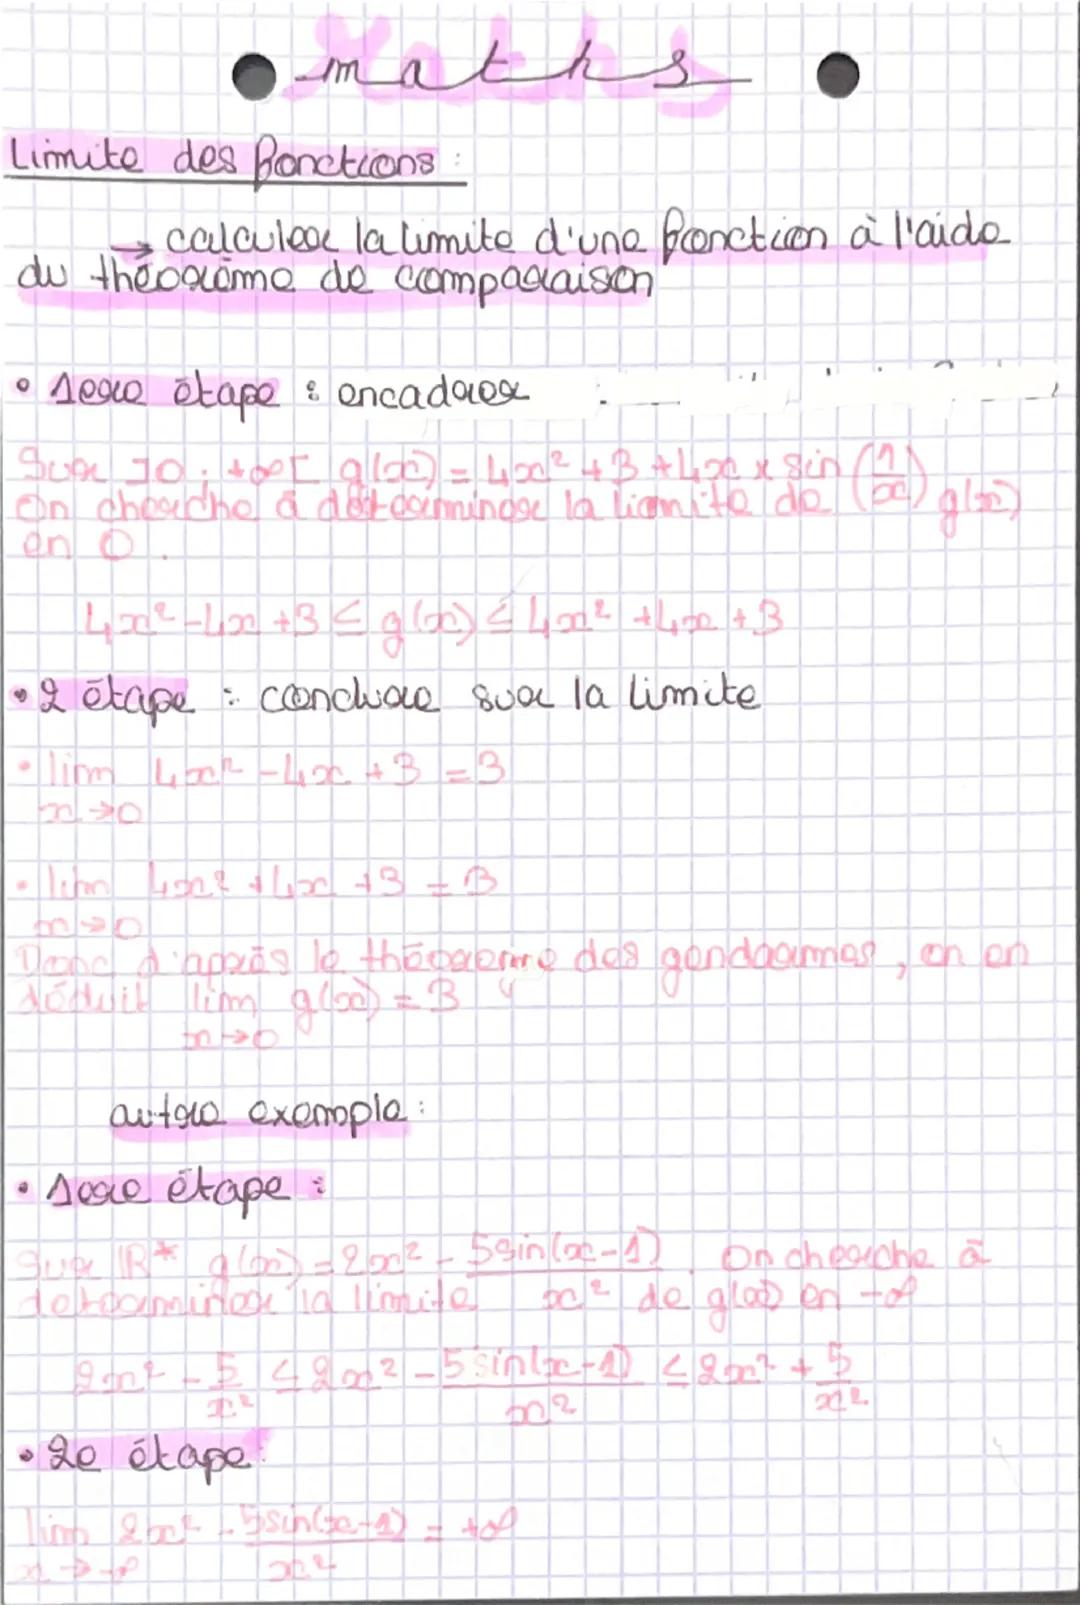 maths
Limite des fonctions :
→ calculer la limite d'une fonction à l'aide
du théorème de comparaison
• 1ere étape : encadrer
Sur ]0 ; +∞[ g(x) = 4x² + 3 + 4x × sin (1/x)
On cherche à déterminer la limite de g(x)
en 0.
4x² - 4x + 3 ≤ g(x) ≤ 4x² + 4x + 3
• 2 étape : conclure sur la limite
• lim 4x² - 4x + 3 = 3
x → 0
• lim 4x² + 4x + 3 = 3
x → 0
Donc d'après le théorème des gendarmes, on en
déduit lim g(x) = 3
x → 0
autre exemple :
• 1ere étape :
Sur ℝ* g(x) = 2x² - 5sin(x-1)/x². On cherche à
déterminer la limite de g(x) en -∞
2x² - 5/x² ≤ 2x² - 5sin(x-1)/x² ≤ 2x² + 5/x²
• 2e étape :
lim 2x² - 5sin(x-1)/x² = +∞
x → -∞